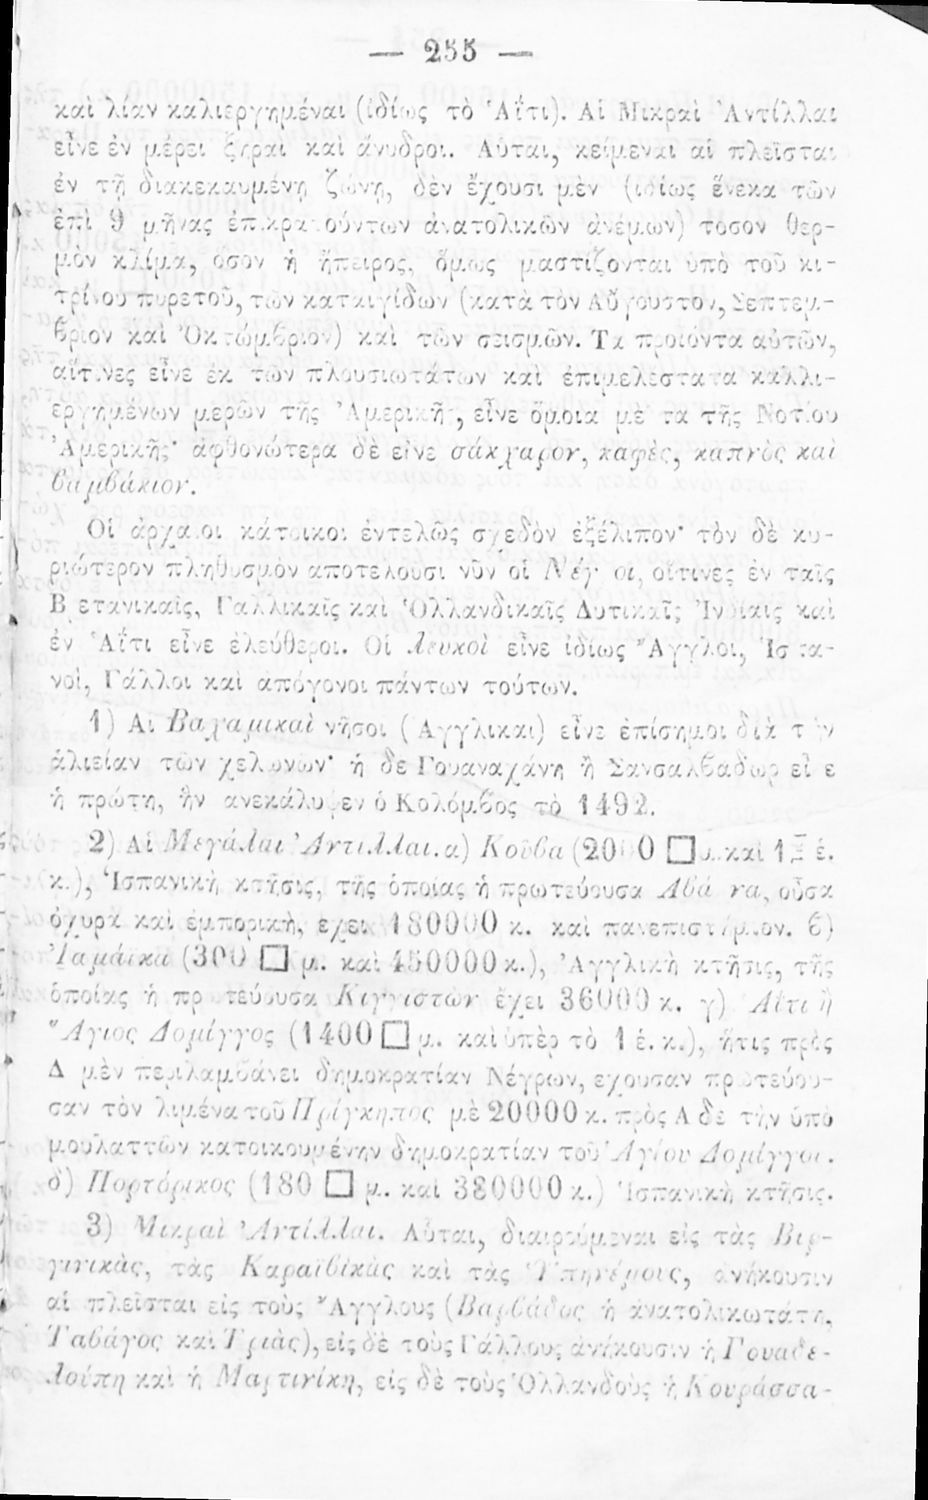 — 255 —
καὶ λίαν καλιεργημέναι (ἰδίως τὸ Ἁΐτι). Αἱ Μικραὶ Ἀντίλλαι
εἶνε ἐν μέρει ξηραὶ καὶ ἄνυδροι. Αὗται, κείμεναι αἱ πλεῖσται
ἐν τῇ διακεκαυμένῃ ζώνῃ, δὲν ἔχουσι μὲν (ἰδίως ἕνεκα τῶν
ἐπὶ 9 μῆνας ἐπικρατούντων ἀνατολικῶν ἀνέμων) τόσον θερ-
μὸν κλίμα, ὅσον ἡ ἤπειρος, ὅμως μαστίζονται ὑπὸ τοῦ κι-
τρίνου πυρετοῦ, τῶν καταιγίδων (κατὰ τὸν Αὔγουστον, Σεπτέμ-
βριον καὶ Ὀκτώμβριον) καὶ τῶν σεισμῶν. Τὰ προϊόντα αὐτῶν,
αἵτινες εἶνε ἐκ τῶν πλουσιωτάτων καὶ ἐπιμελέστατα καλλι-
εργημένων μερῶν τῆς Ἀμερικῆς, εἶνε ὅμοια μὲ τὰ τῆς Νοτίου
Ἀμερικῆς· ἀφθονώτερα δὲ εἶνε σάκχαρον, καφὲς, καπνὸς καὶ
βαμβάκιον.
Οἱ ἀρχαῖοι κάτοικοι ἐντελῶς σχεδὸν ἐξέλιπον· τὸν δὲ κυ-
ριώτερον πληθυσμὸν ἀποτελοῦσι νῦν οἱ Νέγροι, οἵτινες ἐν ταῖς
Βρετανικαῖς, Γαλλικαῖς καὶ Ὁλλανδικαῖς Δυτικαῖς Ἰνδίαις καὶ
ἐν Ἁΐτι εἶνε ἐλεύθεροι. Οἱ Λευκοὶ εἶνε ἰδίως Ἄγγλοι, Ἱσπα-
νοὶ, Γάλλοι καὶ ἀπόγονοι πάντων τούτων.
1) Αἱ Βαχαμικαὶ νῆσοι (Ἀγγλικαὶ) εἶνε ἐπίσημοι διὰ τὴν
ἁλιείαν τῶν χελωνῶν· ἡ δὲ Γουαναχάνη ἢ Σανσαλβαδὼρ εἶνε
ἡ πρώτη, ἣν ἀνεκάλυψεν ὁ Κολόμβος τὸ 1492.
2) Αἱ Μεγάλαι Ἀντίλλαι. α) Κοῦβα (2000 □ μ. καὶ 1 ἑ.
κ.), Ἱσπανικὴ κτῆσις, τῆς ὁποίας ἡ πρωτεύουσα Ἀβάνα, οὖσα
ὀχυρὰ καὶ ἐμπορικὴ, ἔχει 180000 κ. καὶ πανεπιστήμιον. β)
Ἰαμάϊκα (300 □ μ. καὶ 450000 κ.), Ἀγγλικὴ κτῆσις, τῆς
ὁποίας ἡ πρωτεύουσα Κιγγιστὼν ἔχει 36000 κ. γ) Ἁΐτι ἢ
Ἅγιος Δομίγγος (1400 □ μ. καὶ ὑπὲρ τὸ 1 ἑ. κ.), ἥτις πρὸς
Δ μὲν περιλαμβάνει δημοκρατίαν Νέγρων, ἔχουσαν πρωτεύου-
σαν τὸν λιμένα τοῦ Πρίγκηπος μὲ 20000 κ. πρὸς Α δὲ τὴν ὑπὸ
μουλαττῶν κατοικουμένην δημοκρατίαν τοῦ Ἁγίου Δομίγγου.
δ) Πορτόρικος (180 □ μ. καὶ 380000 κ.) Ἱσπανικὴ κτῆσις.
3) Μικραὶ Ἀντίλλαι. Αὗται, διαιρούμεναι εἰς τὰς Βιρ-
γινικὰς, τὰς Καραϊβικὰς καὶ τὰς Ὑπηνέμους, ἀνήκουσιν
αἱ πλεῖσται εἰς τοὺς Ἄγγλους (Βαρβάδος ἡ ἀνατολικωτάτη,
Ταβάγος καὶ Τριὰς), εἰς δὲ τοὺς Γάλλους ἀνήκουσιν ἡ Γουαδε-
λούπη καὶ ἡ Μαρτινίκη, εἰς δὲ τοὺς Ὁλλανδοὺς ἡ Κουράσσα-